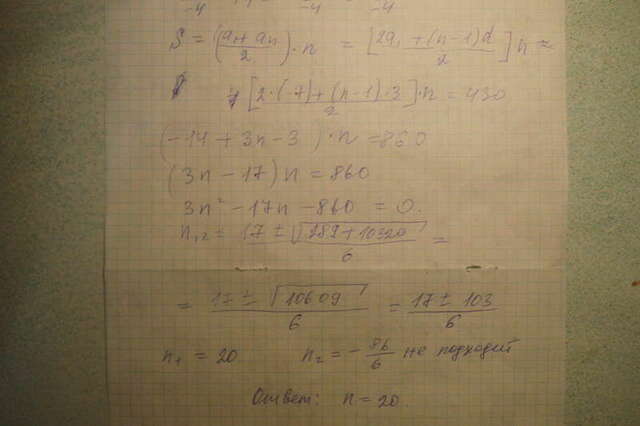 -4 -4 -4
S = (a₁ + aₙ / 2) · n = [2a₁ + (n-1)d / 2] n =
[2·(-7) + (n-1)·3 / 2] · n = 430
(-14 + 3n - 3) · n = 860
(3n - 17) n = 860
3n² - 17n - 860 = 0.
n₁,₂ = 17 ± √289 + 10320 / 6 =
= 17 ± √10609 / 6 = 17 ± 103 / 6
n₁ = 20 n₂ = - 86/6 не подходит
Ответ: n = 20.